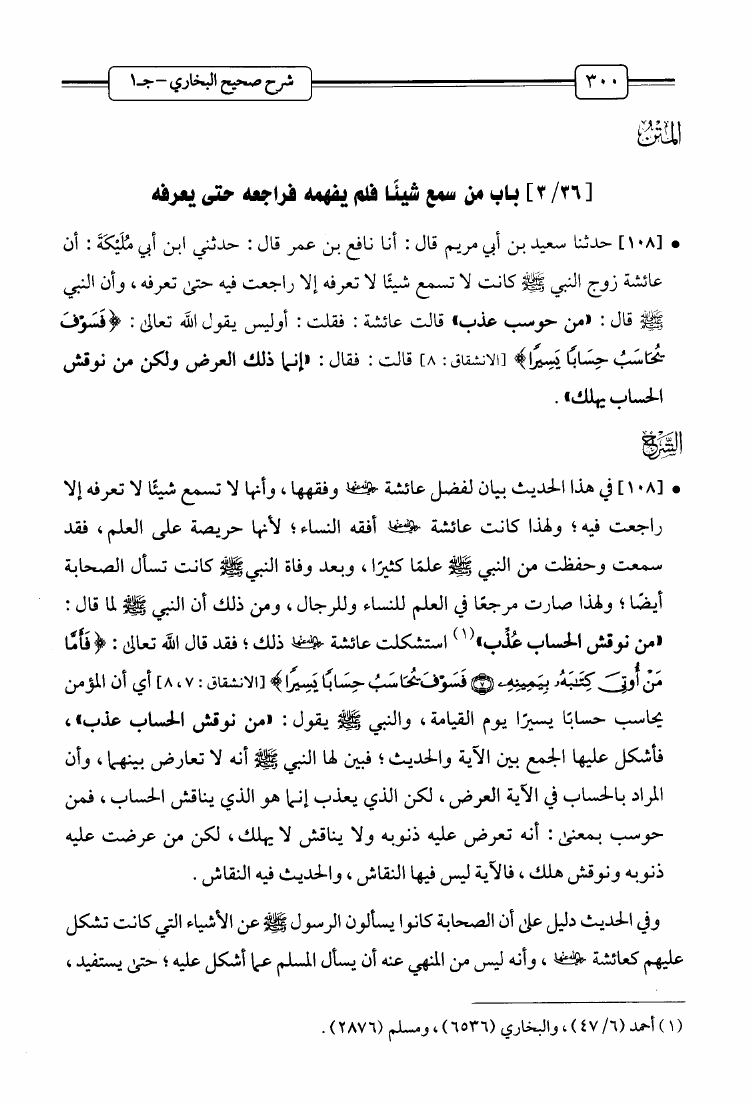 ٣٠٠
شرح صحيح البخاري - جـ١
المتن
[٣/٣٦] باب من سمع شيئًا فلم يفهمه فراجعه حتى يعرفه
• [١٠٨] حدثنا سعيد بن أبي مريم قال : أنا نافع بن عمر قال : حدثني ابن أبي مُلَيْكَةَ : أن
عائشة زوج النبي ﷺ كانت لا تسمع شيئًا لا تعرفه إلا راجعت فيه حتىٰ تعرفه ، وأن النبي
ﷺ قال : «من حوسب عذب» قالت عائشة : فقلت : أوليس يقول الله تعالىٰ : ﴿فَسَوْفَ
يُحَاسَبُ حِسَابًا يَسِيرًا﴾ [الانشقاق : ٨] قالت : فقال : «إنما ذلك العرض ولكن من نوقش
الحساب يهلك» .
الشرح
• [١٠٨] في هذا الحديث بيان لفضل عائشة رضي الله عنها وفقهها ، وأنها لا تسمع شيئًا لا تعرفه إلا
راجعت فيه ؛ ولهذا كانت عائشة رضي الله عنها أفقه النساء ؛ لأنها حريصة على العلم ، فقد
سمعت وحفظت من النبي ﷺ علمًا كثيرًا ، وبعد وفاة النبي ﷺ كانت تسأل الصحابة
أيضًا ؛ ولهذا صارت مرجعًا في العلم للنساء وللرجال ، ومن ذلك أن النبي ﷺ لما قال :
«من نوقش الحساب عُذِّب»(١) استشكلت عائشة رضي الله عنها ذلك ؛ فقد قال الله تعالىٰ : ﴿فَأَمَّا
مَنْ أُوتِيَ كِتَـٰبَهُۥ بِيَمِينِهِۦ ۝٧ فَسَوْفَ يُحَاسَبُ حِسَابًا يَسِيرًا﴾ [الانشقاق : ٧ ، ٨] أي أن المؤمن
يحاسب حسابًا يسيرًا يوم القيامة ، والنبي ﷺ يقول : «من نوقش الحساب عذب» ،
فأشكل عليها الجمع بين الآية والحديث ؛ فبين لها النبي ﷺ أنه لا تعارض بينهما ، وأن
المراد بالحساب في الآية العرض ، لكن الذي يعذب إنما هو الذي يناقش الحساب ، فمن
حوسب بمعنىٰ : أنه تعرض عليه ذنوبه ولا يناقش لا يهلك ، لكن من عرضت عليه
ذنوبه ونوقش هلك ، فالآية ليس فيها النقاش ، والحديث فيه النقاش .
وفي الحديث دليل علىٰ أن الصحابة كانوا يسألون الرسول ﷺ عن الأشياء التي كانت تشكل
عليهم كعائشة رضي الله عنها ، وأنه ليس من المنهي عنه أن يسأل المسلم عما أشكل عليه ؛ حتىٰ يستفيد ،
(١) أحمد (٤٧/٦) ، والبخاري (٦٥٣٦) ، ومسلم (٢٨٧٦) .